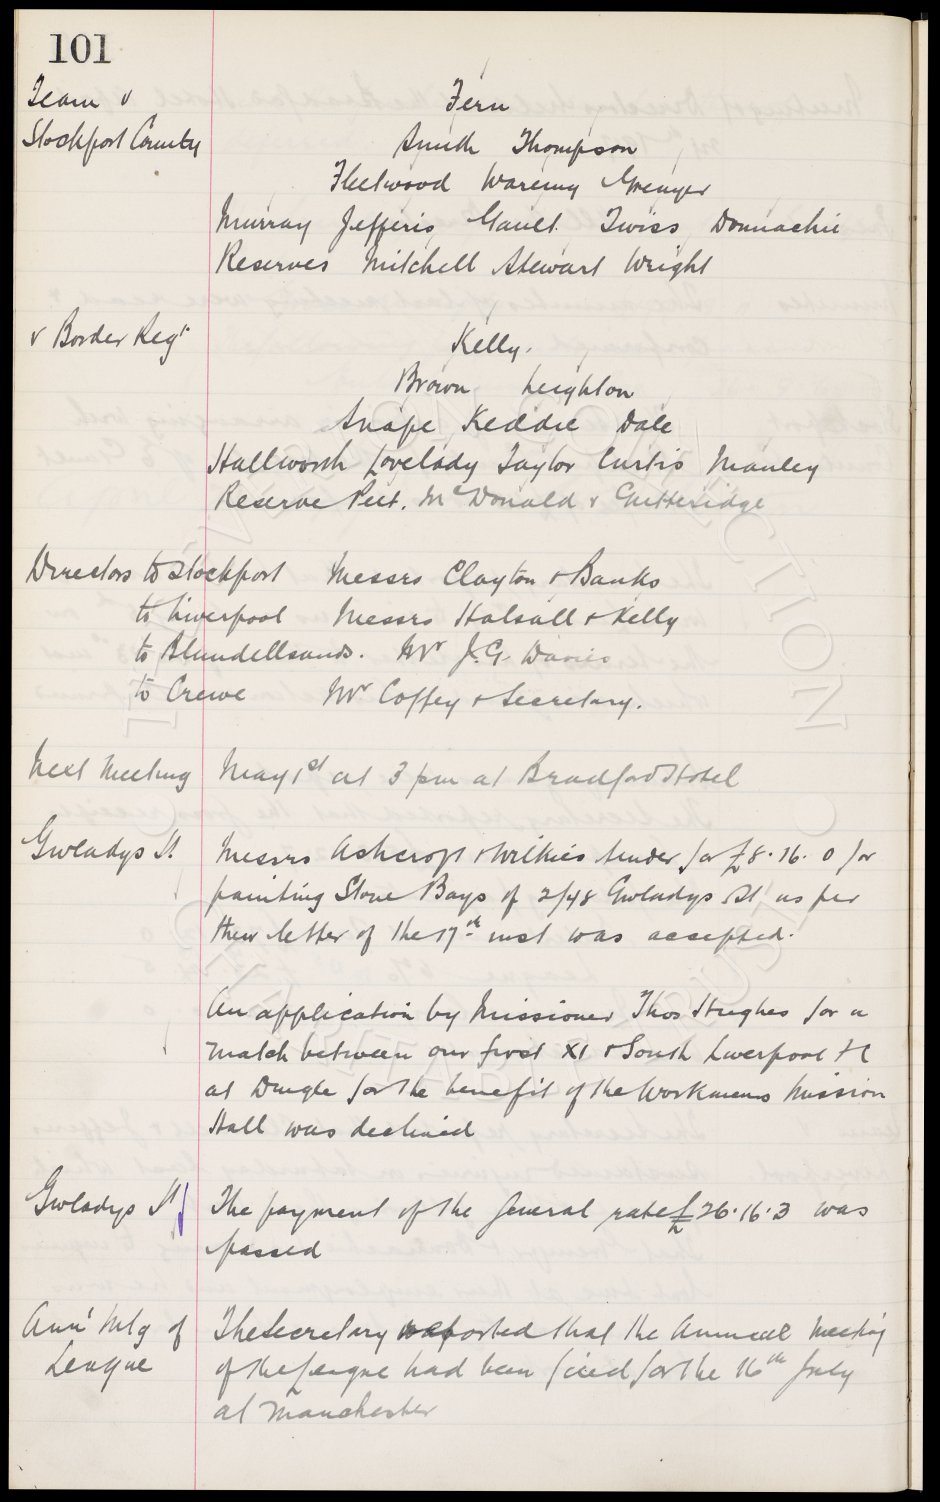 101
Team v
Stockport County
Fern
Smith Thompson
Fleetwood Wareing Grenyer
Murray Jefferis Gault Twiss Donnachie
Reserves Mitchell Stewart Wright
v Border Regt
Kelly.
Brown Leighton
Snape Keddie Dale
Hallworth Lovelady Taylor Curtis Manley
Reserve Peet. McDonald & Gutteridge
Directors to Stockport Messrs Clayton & Banks
to Liverpool Messrs Halsall & Kelly
to Blundellsands. Mr J.G. Davies
to Crewe Mr Coffey & Secretary.
Next Meeting May 1st at 3 pm at Bradford Hotel
Gwladys St. Messrs Ashcroft & Wilkies tender for £8.16.0 for
painting Stone Bays of 2/48 Gwladys St as per
their letter of the 17th inst was accepted.
An application by Missioner Thos Hughes for a
match between our first XI & South Liverpool FC
at Dingle for the benefit of the Workmens Mission
Hall was declined
Gwladys St The payment of the General rate £26.16.3 was
passed
Ann' Mtg of
League
The Secretary reported that the Annual Meeting
of the League had been fixed for the 16th July
at Manchester